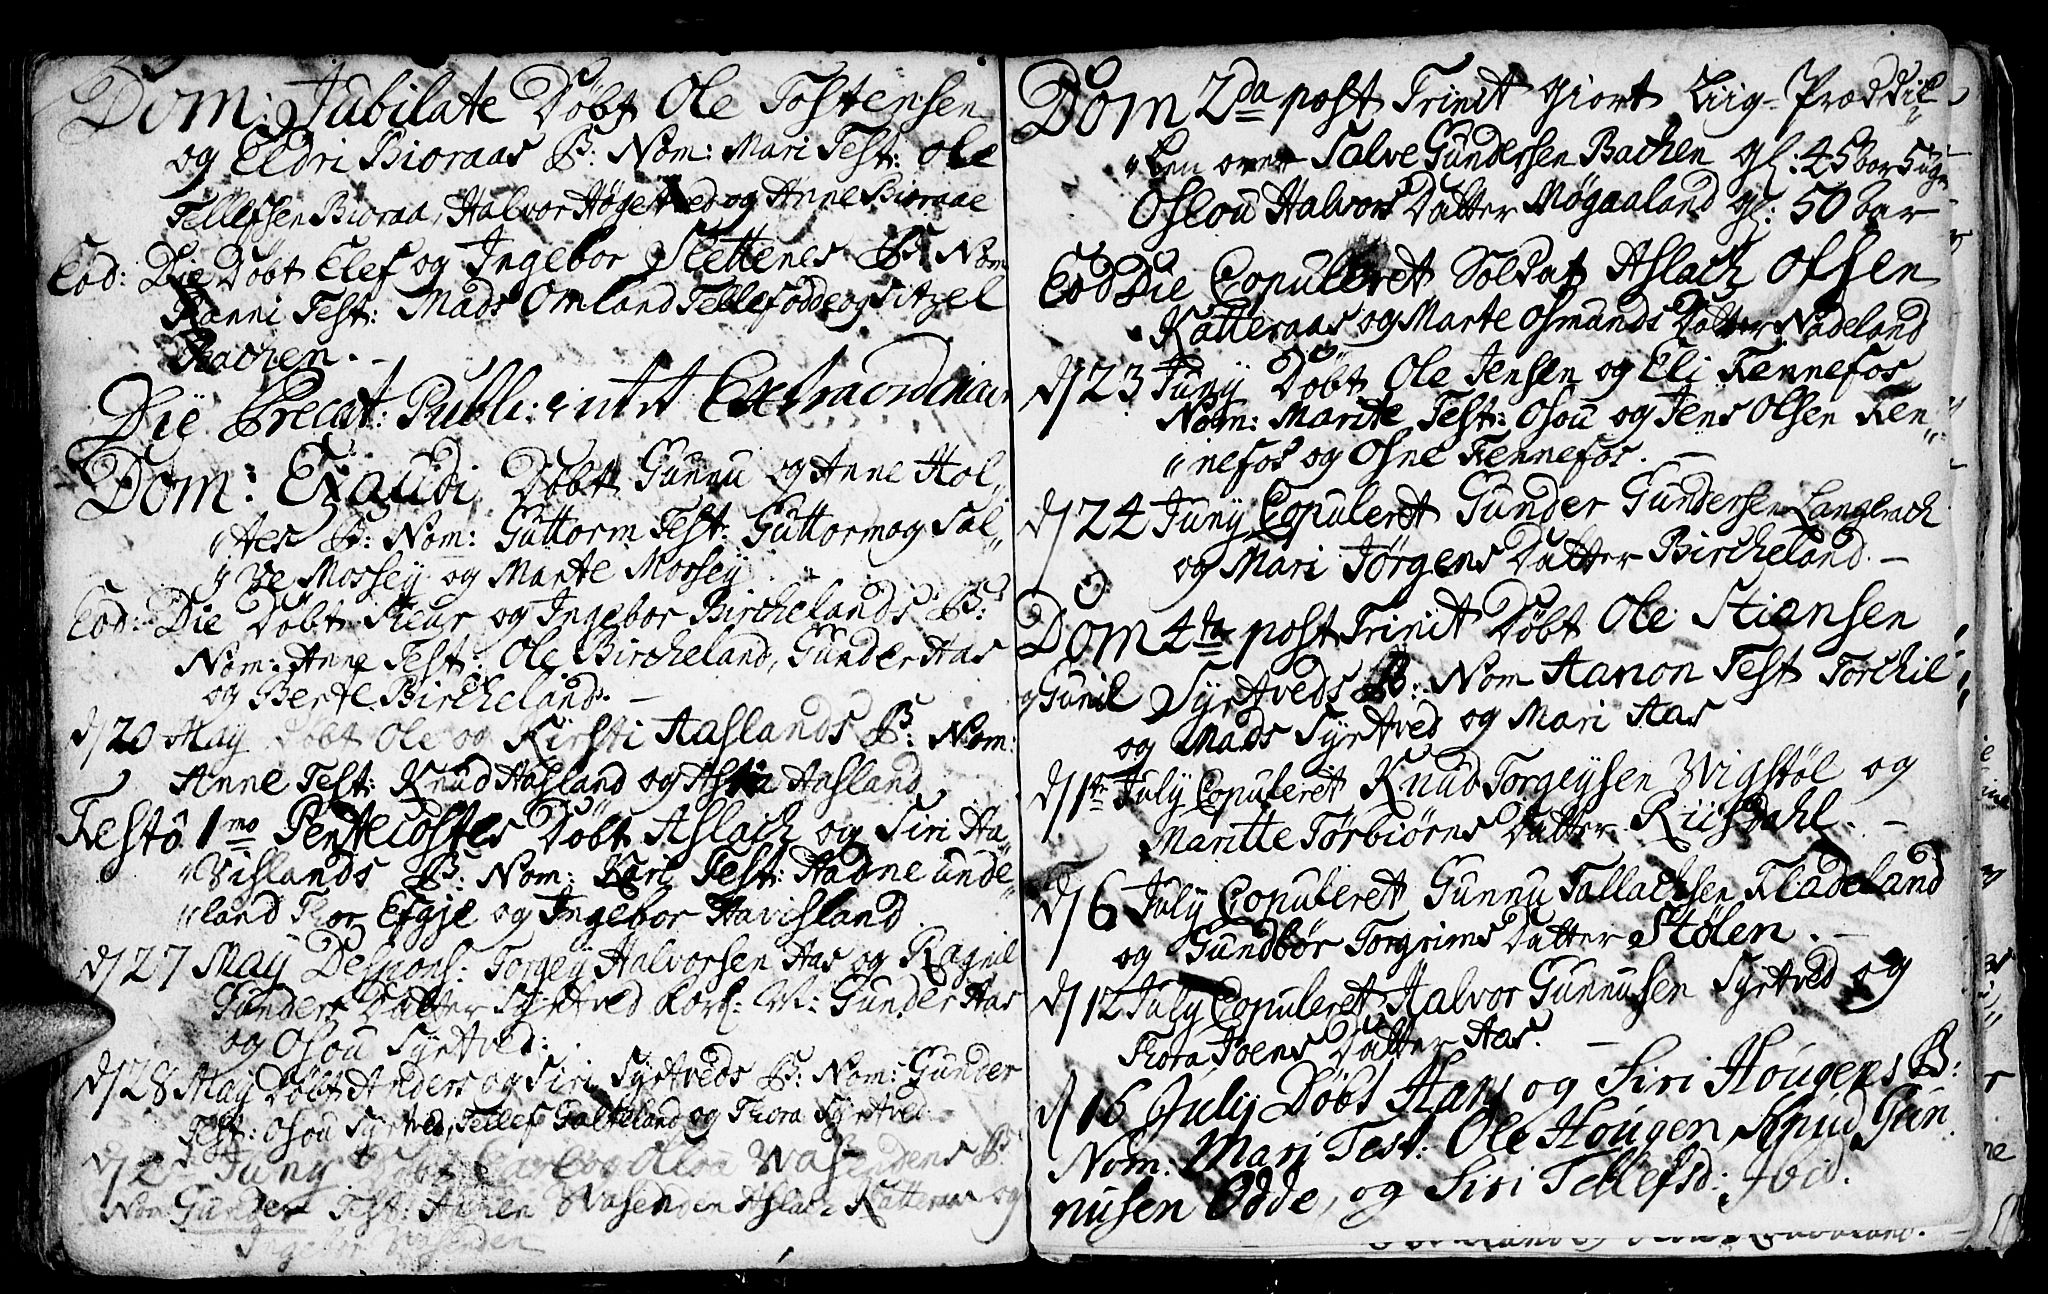 Dom: Jubilate Døbt Ole Tostensen
og Eldri Bioraas B: Nom: Mari Test: Ole
Tellefsen Bioraa, Halvor og Anne Bioraae
Eod: Die Døbt Elef og Ingebor Slettenes B: Nom
Ranni Test: Mads Omland Tellef Odde og Sitzel
Bachen. -
Die Precat: Publ: Extraordinair
Dom: Exaudi Døbt Gunnu og Anne Hol„
„tes B: Nom: Guttorm Test: Guttorm og Sal„
„ve Mossey og Marte Mossey
Eod: Die Døbt og Ingebor Birchelands B:
Nom: Anne Test: Ole Bircheland, Gunder Aas
og Berte Bircheland. -
d/20 May Døbt Ole og Kirsti Aaslands B: Nom:
Anne Test: Knud Aasland og Aasland
Festô 1mo Pentecostes Døbt Aslach og Siri Ha„
„vislands B: Nom: Kari Test: Aadne unde„
„land Tor Efgje og Ingebor Havisland
d/27 May Despons: Torgey Halvorsen Aas og Ragnil
Gunders Datter Syrtved Gunder Aas
og Osou Syrtved.
d/28 May Døbt Anders og Siri Syrtveds B: Nom: Gunder
Test: Osou Syrtved, Tellef Galteland og Thora Syrtved
d/2 Juny Døbt og Wasendens B:
Nom: Gunder Test: Wasenden Aslach Katteraas og
Ingebor Wasenden
Dom 2da post Trinit giort Liig-Præddik„
„ken over Salve Gundersen Bachen gl: 45
Oslou Halvors Datter Møgaaland gl: 50 aar
Eod Die Copuleret Soldat Aslach Olsen
Katteraas og Marte Osmunds Datter Nadeland
d/23 Juny Døbt Ole Jensen og Eli Fennefos
Nom: Marite Test: Osou og Jens Olsen Fen„
„nefos og Osne Fennefos. -
d/24 Juny Copuleret Gunder Gundersen Langerach
og Mari Jørgens Datter Bircheland. -
Dom 4ta post Trinit Døbt Ole Stiansen
og Gunil Syrtveds B: Nom Aanon Test Torchil
og Mads Syrtved og Mari Aas
d/1te July Copuleret Knud Torgeysen Wigstøl og
Maritte Torbiørns Datter Riisdahl. -
d/6 July Copuleret Gunnu Tallachsen Fladeland
og Gundbør Torgrims Datter Stølen. -
d/12 July Copuleret Halvor Gunnusen Syrtved og
Thora Joens Datter Aas. -
d/16 July Døbt Hans og Siri Hougens B:
Nom: Mari Test: Ole Hougen, Knud Gun
nusen Odde, og Siri Tellefsd: Ibid.